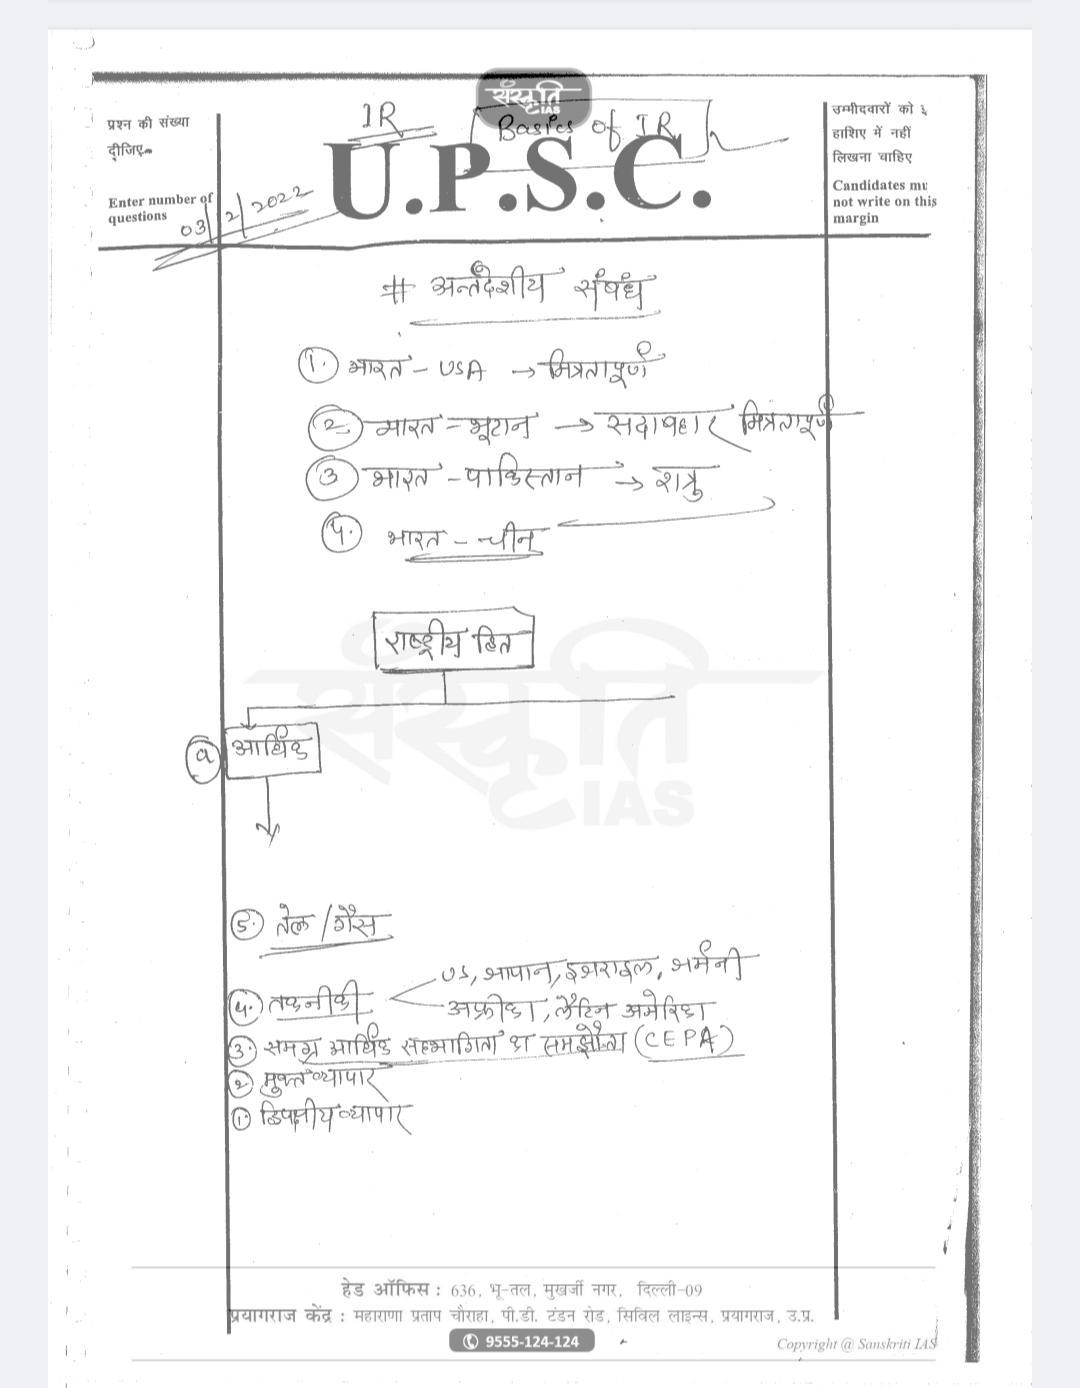 संस्कृति
IAS
प्रश्न की संख्या
दीजिए
Enter number of
questions
03/2/2022
IR
Basics of IR
U.P.S.C.
उम्मीदवारों को इ
हाशिए में नहीं
लिखना चाहिए
Candidates mu
not write on this
margin
# अर्न्तदेशीय संबंध
1. भारत - USA → मित्रतापूर्ण
2 भारत - भूटान → सदाबहार मित्रतापूर्ण
3 भारत - पाकिस्तान → शत्रु
4. भारत - चीन
राष्ट्रीय हित
संस्कृति
IAS
a आर्थिक
5. तेल / गैस
4. तकनीकी
US, जापान, इजराइल, जर्मनी
अफ्रीका, लैटिन अमेरिका
3. समग्र आर्थिक सहभागिता का समझौता (CEPA)
2 मुक्त व्यापार
1. द्विपक्षीय व्यापार
हेड ऑफिस : 636, भू-तल, मुखर्जी नगर, दिल्ली-09
प्रयागराज केंद्र : महाराणा प्रताप चौराहा, पी.डी. टंडन रोड, सिविल लाइन्स, प्रयागराज, उ.प्र.
9555-124-124
Copyright @ Sanskriti IAS